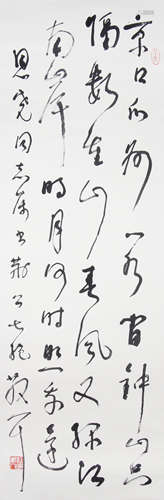 京口瓜洲一水间钟山只
隔数重山春风又绿江
南岸明月何时照我还
思尧同志属书荆公七绝 散耳